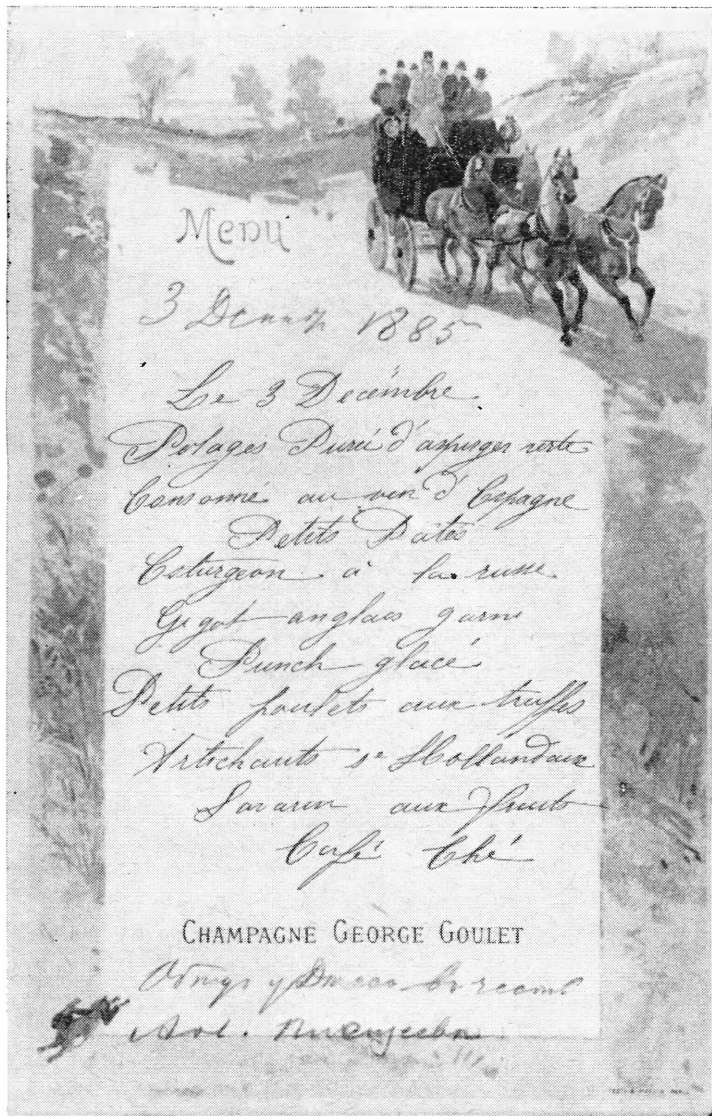 Menu
3 1885
Le 3 Decémbre
Potages Purée d'asperges verte
Consommé au vin d'Espagne
Petits Patés
Esturgeon à la russe
Gigot anglais garni
Punch glacé
Petits poulets aux truffes
Artichauts sce Hollandaise
Savarin aux fruits
Café Thé
CHAMPAGNE GEORGE GOULET